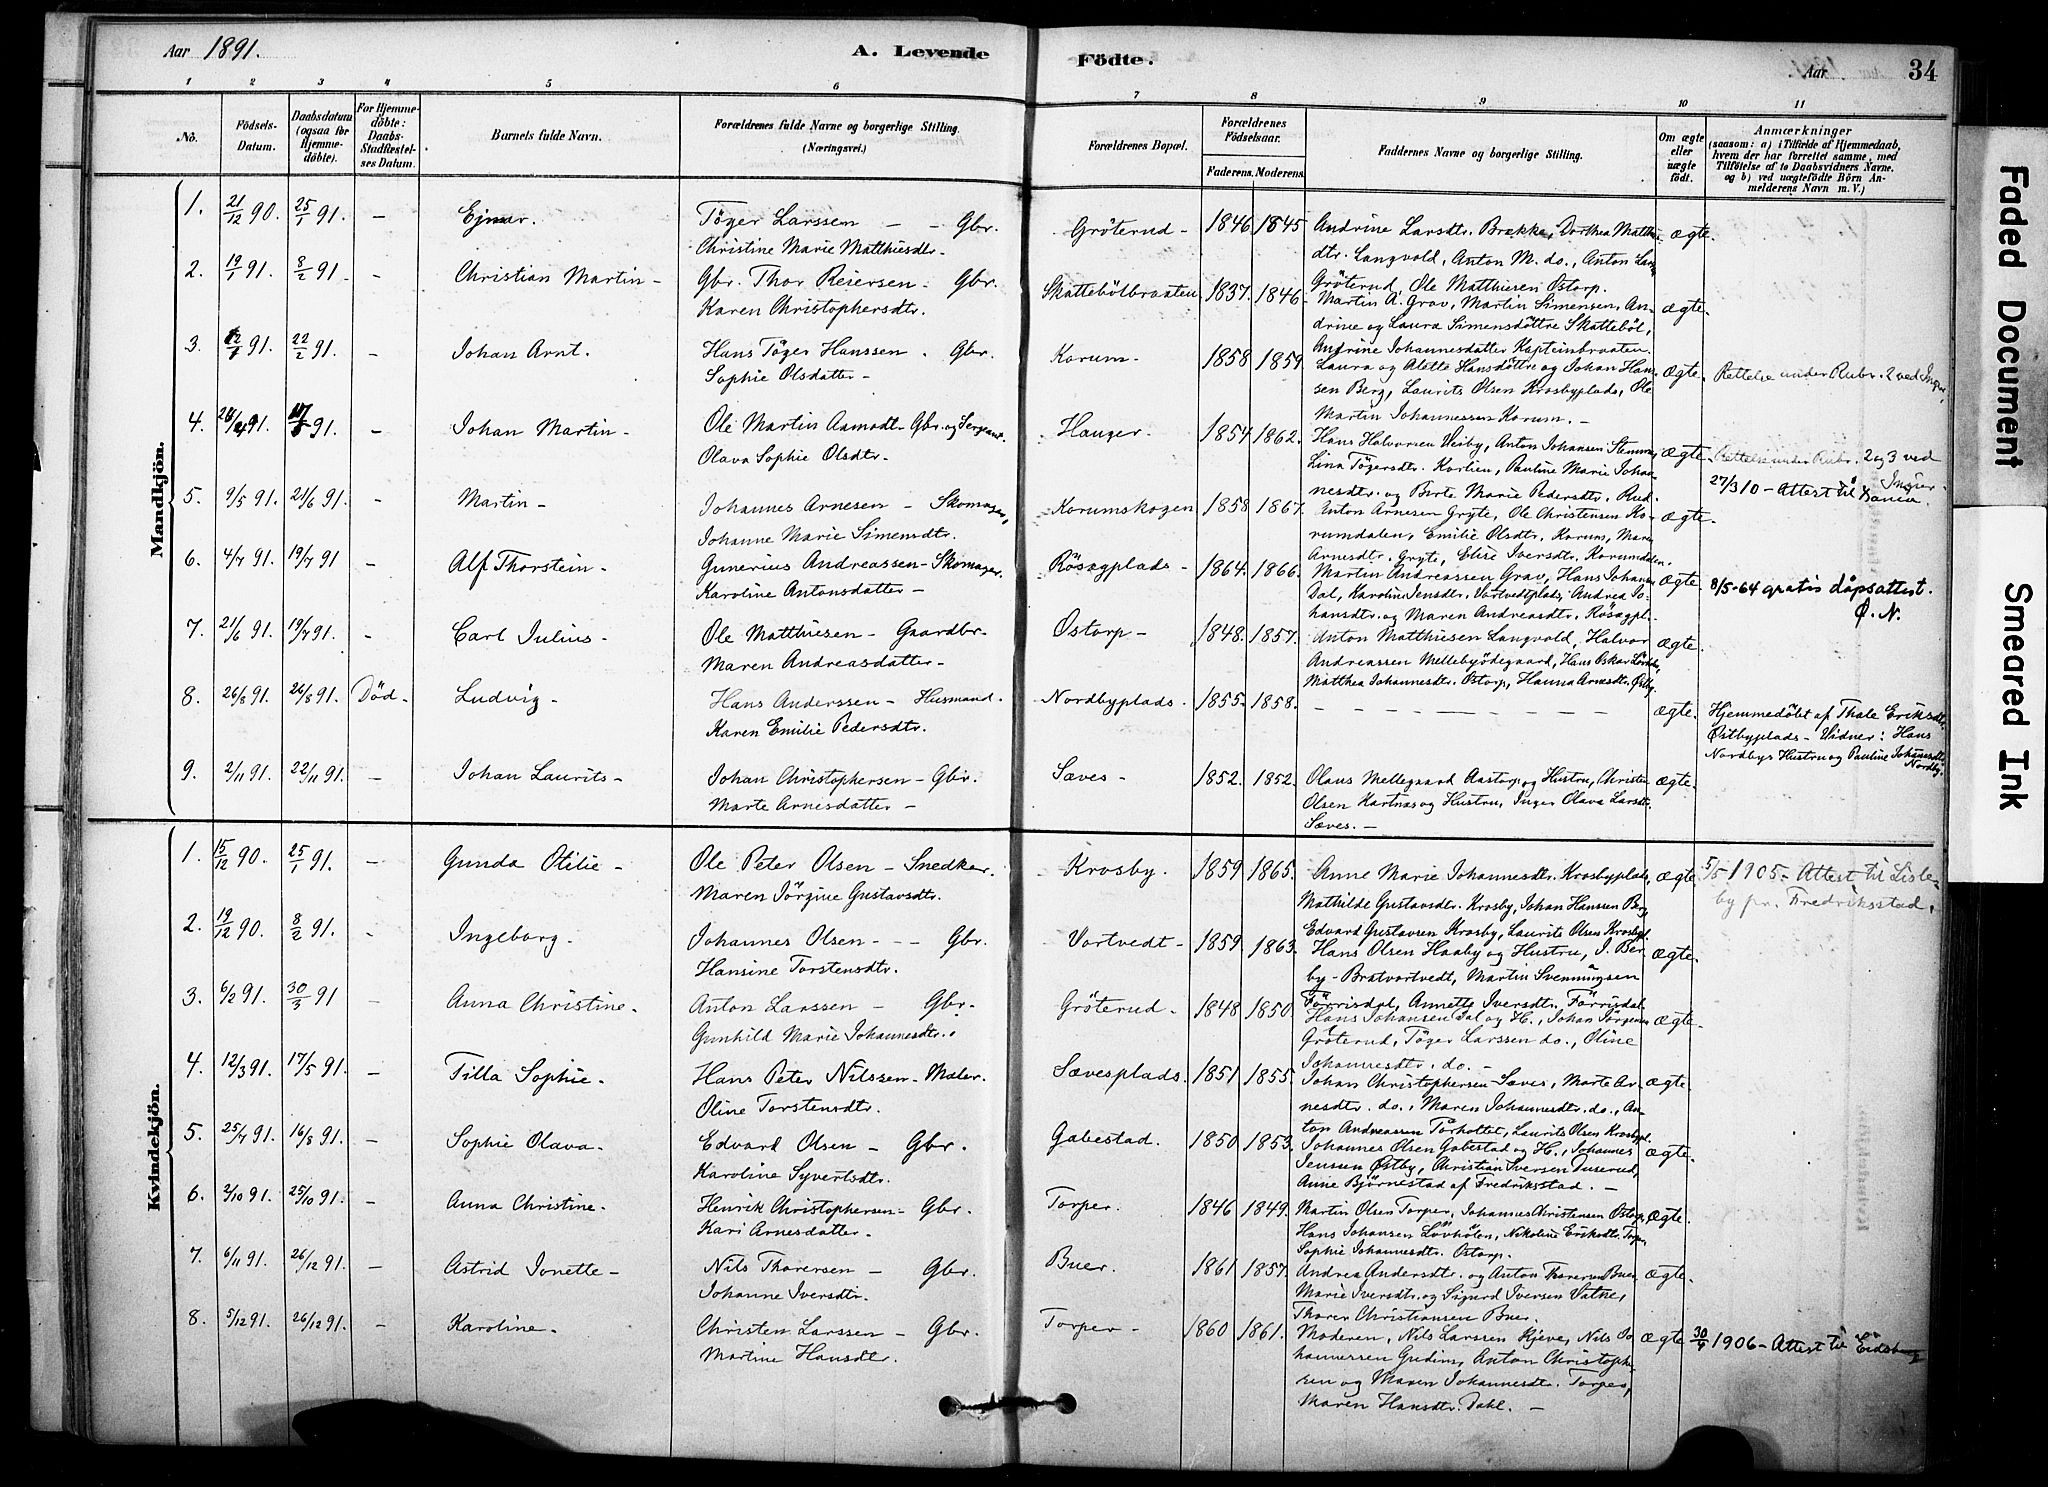 Aar 1891. A. Levende Födte. Aar 34
1 2 3 4 5 6 7 8 9 10 11
No. Födsels-Datum. Daabsdatum (ogsaa for Hjemmedöbte). For Hjemmedöbte: Daabs-Stadfæstelses Datum. Barnets fulde Navn. Forældrenes fulde Navne og borgerlige Stilling. (Næringsvei.) Forældrenes Bopæl. Forældrenes Födselsaar. Faderens. Moderens. Faddernes Navne og borgerlige Stilling. Om ægte eller uægte födt. Anmærkninger (saasom: a) i Tilfælde af Hjemmedaab, hvem der har forrettet samme, med Tilföielse af to Daabsvidners Navne. og b) ved uægtefödte Börn Anmelderens Navn m. V.)
Mandkjön.
1. 21/12 90. 25/1 91. - Ejnar. Töger Larssen - - Gbr. Gröterud - 1846 1845 Andrine Larsdtr. Brække, Dorthea Matth ægte.
Christine Marie Matthiesdtr. dtr. Langvold, Anton M. do., Anton Lars
Gröterud, Ole Matthiesen Ostorp.
2. 19/1 91. 8/2 91. - Christian Martin - Gbr. Thor Reiersen - Gbr. Skattebölbraaten 1837. 1846. Martin A. Grav, Martin Simensen, An- ægte.
Karen Christophersdtr. drine og Laura Simensdöttre Skatteböl,
Andrine Johannesdatter Kapteinbraaten.
3. 91. 22/2 91. - Johan Arnt. Hans Töger Hanssen. Gbr. Korum - 1858 1859 Laura og Alette Hansdöttre og Johan Han- ægte. Rettelse under Rubr. 2 ved Ingier.
Sophie Olsdatter - sen Berg, Laurits Olsen Krosbyplads, Ole
Martin Johannessen Korum. -
4. 91. 17/ 91. - Johan Martin - Ole Martin Aamodt - Gbr. og Sergeant. Hauger. 1854 1862. Hans Halvorsen Visby, Anton Johansen Stemme, ægte. Rettelse under Rubr. 2 og 3 ved Ingier.
Olava Sophie Olsdtr. Lina Tögersdtr. Korlien, Pauline Marie Johan-
nesdtr. og Berte Marie Pedersdtr. Rud. 27/3 10 - Attest til
5. 9/5 91. 21/6 91. - Martin - Johannes Arnesen - Skomager, Korumskogen 1858 1867. Anton Arnesen Gryte, Ole Christensen Ko- ægte.
Johanne Marie Simensdtr. rumdalen, Emilie Olsdtr. Korum, Mari
Arnesdtr. Gryte, Elise Iversdtr. Korumdalen.
6. 4/7 91. 19/7 91 - Alf Thorstein - Gunerius Andreassen - Skomager. Rösægplads - 1864. 1866. Martin Andreassen Grav, Hans Johansen ægte. 8/5-64 gratis dåpsattest.
Karoline Antonsdatter - Dal, Karoline Jensdtr. Vortvedtplads, Andrea Jo- Ø. N.
hansdtr. og Maren Andreasdtr. Rösægpl.
7. 21/6 91. 19/7 91. - Carl Julius - Ole Matthiesen - Gaardbr. Ostorp - 1848. 1857. Anton Matthiesen Langvold, Halvor ægte.
Maren Andreasdatter - Andreassen Mellebyödegaard, Hans Oskar
Matthea Johannesdtr. Ostorp, Hanna Arnesdtr. Östby.
8. 26/8 91. 26/8 91. Död - Ludvig - Hans Anderssen - Husmand. Nordbyplads. 1855. 1858. - - - - - ægte. Hjemmedöbt af Thale Eriksdtr.
Karen Emilie Pedersdtr. Östbyplads - Vidner: Hans
Nordbys Hustru og Pauline Johansdtr. Nordby.
9. 2/11 91. 22/11 91. - Johan Laurits - Johan Christophersen - Gbr. Sæves - 1852. 1852. Olaus Mellegaard Aastorp og Hustru, Christen ægte.
Marte Arnesdatter - Olsen Hartnæs og Hustru, Inger Olava Larsdtr.
Sæves. -
Kvindekjön.
1. 15/12 90. 25/1 91. - Gunda Otilie - Ole Peter Olsen - Snedker. Krosby. 1859 1865. Anne Marie Johannesdtr. Krosbyplads, ægte. 5/5 1905 - Attest til Lisle-
Maren Jörgine Gustavsdtr. Mathilde Gustavsdtr. Krosby, Johan Hanssen Berg, by pr. Fredriksstad.
Edvard Gustavsen Krosby, Laurits Olsen Krosbypl.
2. 19/12 90. 8/2 91. - Ingeborg. Johannes Olsen - - Gbr. Vortvedt - 1859 1863. Hans Olsen Haaby og Hustru, J. Ber- ægte.
Hansine Torstensdtr. by - Bratvortvedt, Martin Svenningsen
Förrisdal, Annette Iversdtr. Förrisdal.
3. 6/2 91. 30/3 91 - Anna Christine - Anton Larssen - Gbr. Gröterud - 1848 1850. Hans Johansen Dal og H., Johan Jörgensen ægte.
Gunhild Marie Johannesdtr. Gröterud, Töger Larssen do., Oline
Johannesdtr. do. -
4. 12/3 91. 17/5 91. - Tilla Sophie - Hans Peter Nilssen - Maler. Sævesplads. 1851 1855. Johan Christophersen Sæves, Marte Ar- ægte.
Oline Torstensdtr. nesdtr. do., Maren Johannesdtr. do., An-
ton Andreassen Torholtet, Laurits Olsen Krosbypl.
5. 25/7 91. 16/8 91. - Sophie Olava - Edvard Olsen - Gbr. Gabestad. 1850 1853. Johannes Olsen Gabestad og H., Johannes ægte.
Karoline Syvertsdtr. Jenssen Östby, Christian Iversen Duserud,
Anne Björnestad af Fredriksstad. -
6. 2/10 91. 25/10 91. - Anna Christine - Henrik Christophersen - Gbr. Torper. 1846 1849. Martin Olsen Torper, Johannes Christensen Ostorp, ægte.
Kari Arnesdatter - Hans Johansen Lövholen, Nikoline Eriksdtr. Torper,
Sophie Johannesdtr. Ostorp.
7. 6/11 91. 26/12 91. - Astrid Jonette - Nils Thoresen - Gbr. Buer. 1861 1857. Andrea Andersdtr. og Anton Thoresen Buer ægte.
Johanne Iversdtr. Marie Iversdtr. og Sigurd Iversen Vatne,
Thorer Christiansen Buer.
8. 5/12 91. 26/12 91. - Karoline - Christen Larssen - Gbr. Torper - 1860 1861. Moderen, Nils Larssen Kjeve, Nils Jo- ægte 30/9 1906 - Attest til Eidsberg
Martine Hansdtr. hannessen Gudim, Anton Christophe-
sen og Maren Johannesdtr. Torper,
Maren Hansdtr. Dahl. -
Faded Document
Smeared Ink